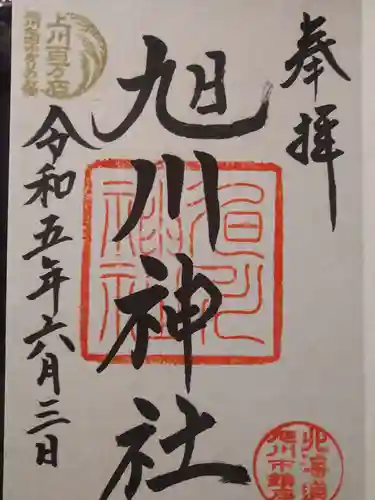 奉拝
旭川神社
令和五年六月三日
上川百万石
旭川神社
北海道
旭川市鎮座